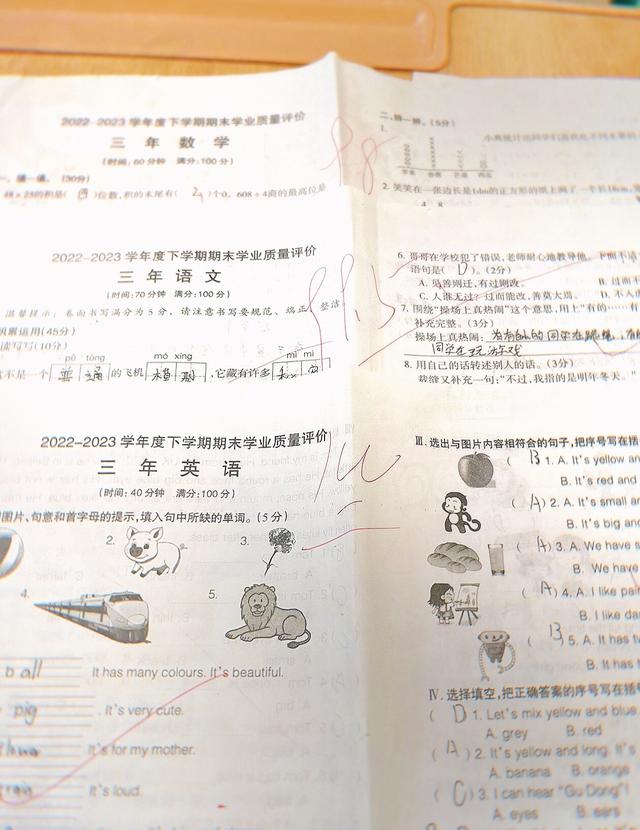 2022-2023 学年度下学期期末学业质量评价
三 年 数 学
(时间:60分钟 满分:100分)
一、填一填。(30分)
48×25的积是( )位数,积的末尾有( 2 )个0。608÷4商的最高位是
98
二、辨一辨。(5分)
1.
2. 笑笑在一张边长是1dm的正方形的纸上画了一个长18cm,
2022-2023学年度下学期期末学业质量评价
三 年 语 文
(时间:70分钟 满分:100分)
温馨提示:卷面书写满分为5分,请注意书写要规范、端正、整洁
积累运用(45分)
读写写(10分)
pǔ tōng mó xíng mì mì
不是一个普通的飞机模型,它藏有许多
6. 哥哥在学校犯了错误,老师耐心地教导他。下面不适
语句是( D )。(2分)
A. 见善则迁,有过则改。 B. 过而不
C. 人谁无过?过而能改,善莫大焉。 D. 不入
7. 围绕“操场上真热闹”这个意思,用上“有的……有
补充完整。(3分)
操场上真热闹:有的同学在跳绳,有的
同学在玩游戏
8. 用自己的话转述别人的话。(3分)
裁缝又补充一句:“不过,我指的是明年冬天。”
2022-2023学年度下学期期末学业质量评价
三 年 英 语
(时间:40分钟 满分:100分)
图片、句意和首字母的提示,填入句中所缺的单词。(5分)
2. 3.
4. 5.
ball It has many colours. It's beautiful.
pig . It's very cute.
It's for my mother.
train It's loud.
Ⅲ. 选出与图片内容相符合的句子,把序号写在括号
( B ) 1. A. It's yellow an
B. It's red and
( A ) 2. A. It's small a
B. It's big an
( A ) 3. A. We have s
B. We have
( A ) 4. A. I like pai
B. I like da
( B ) 5. A. It has t
B. It has t
Ⅳ. 选择填空,把正确答案的序号写在括号
( D ) 1. Let's mix yellow and blue.
A. grey B. red
( A ) 2. It's yellow and long. It's
A. banana B. orange
( C ) 3. I can hear "Gu Dong"!
A. eyes B. ears